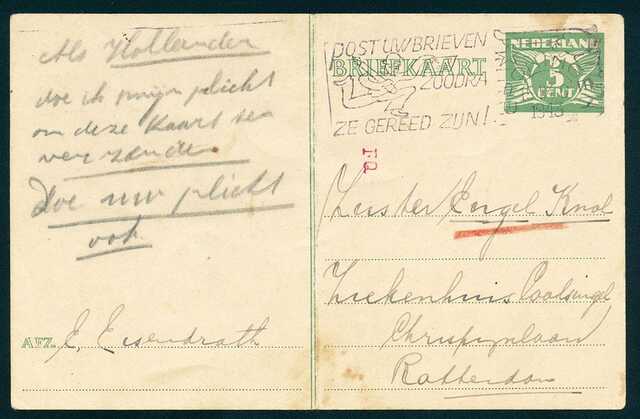 Als Hollander
doe ik mijn plicht
om deze Kaart te
verzenden.
Doe uw plicht
ook
AFZ. E. Eisendrath
POST UW BRIEVEN
ZOODRA
ZE GEREED ZIJN!
NEDERLAND
5
CENT
BRIEFKAART
Zuster Engel Knol
Ziekenhuis Coolsingel
Rotterdam